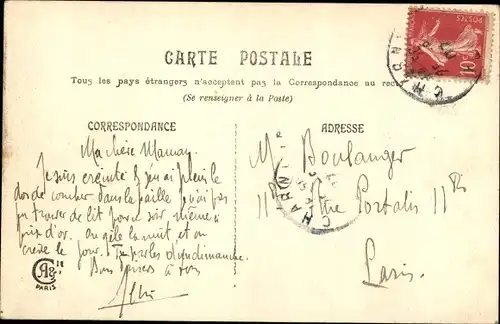 CARTE POSTALE
Tous les pays étrangers n'acceptent pas la Correspondance au rec
(Se renseigner à la Poste)
CORRESPONDANCE
ADRESSE
Ma chère Maman
Je suis éreinté & j'en ai plein le
dos de coucher dans la paille j'ai pas
pu trouver de lit pour ce soir même à
prix d'or. On gèle la nuit et on
crève le jour. Tu parles d'un dimanche.
Bons baisers à tous
Me Boulanger
11 Rue Portalis 11
Paris.
POSTES
10
CHARNY
CHARNY
PARIS